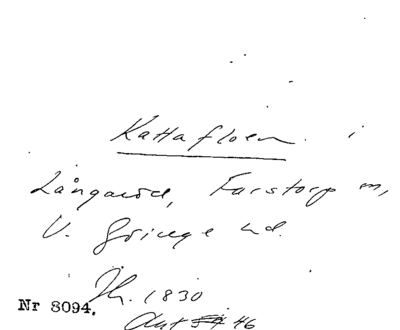 Kattafloen i
Långaröd, Farstorp sn,
V. Göinge hd.
Jh. 1830
Nr 8094.
Ant 46